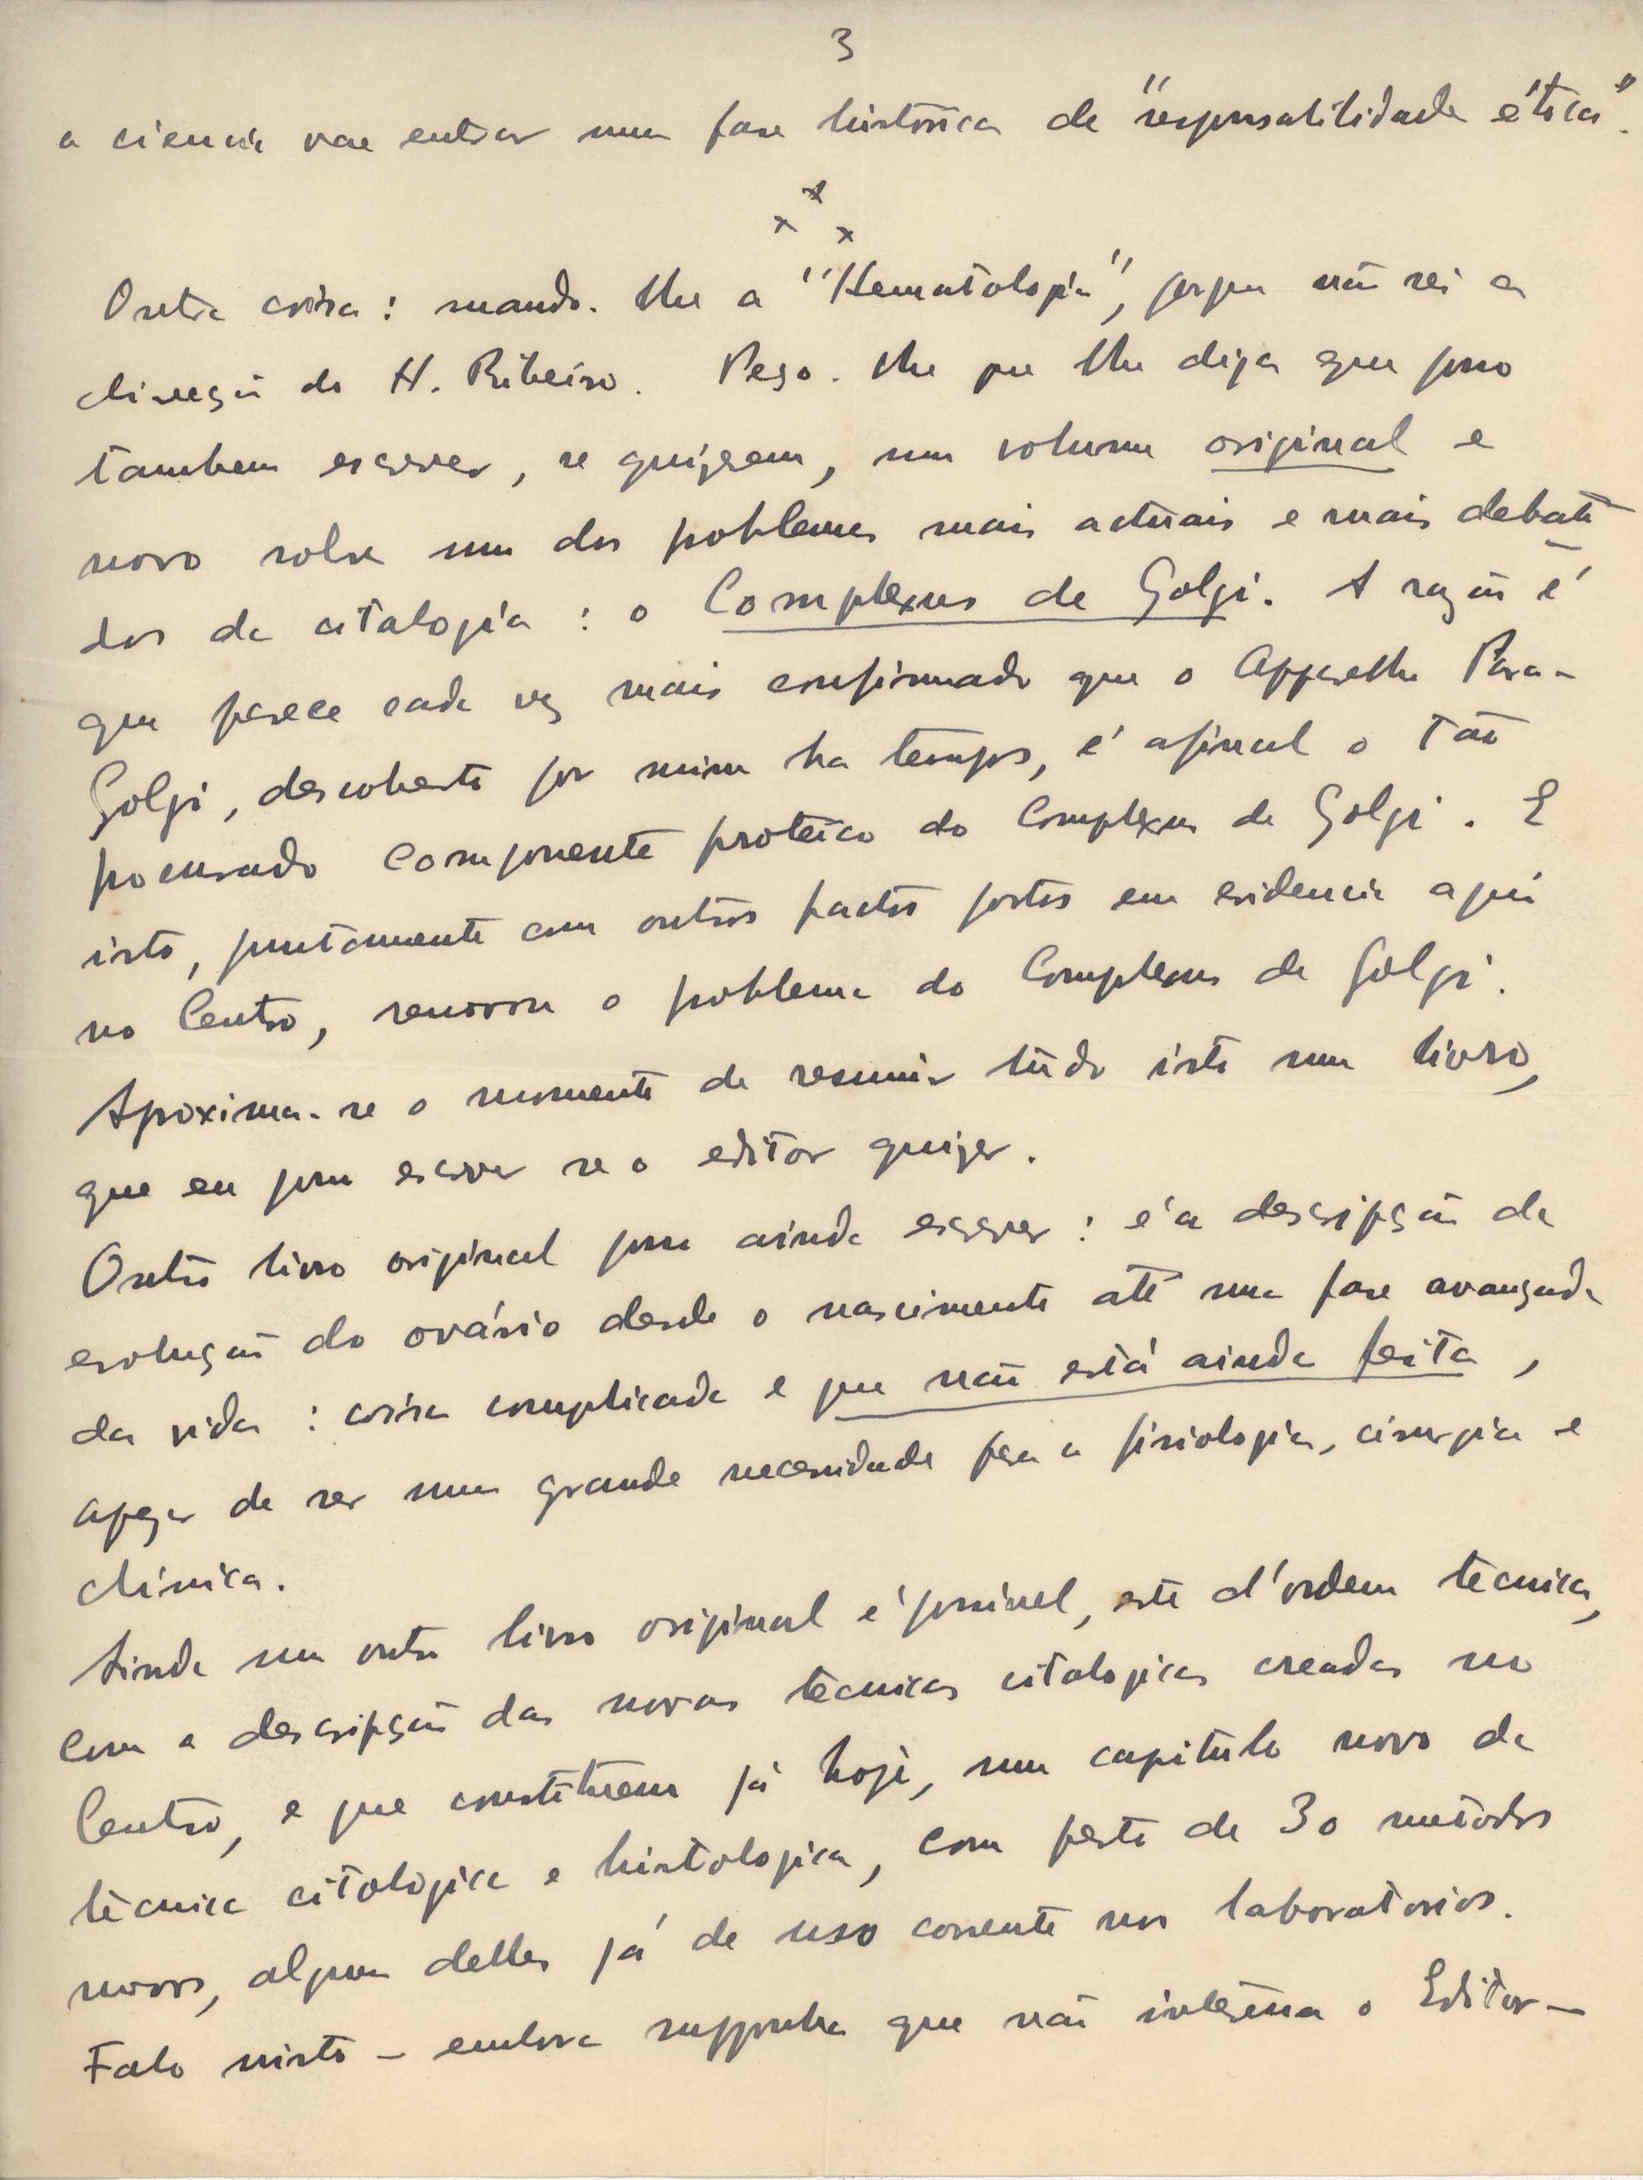 3
a ciencia vae entrar numa fase historica de "responsabilidade ética".
x x x
Outra coisa: mando-lhe a "Hematologia", porque não sei a
direcção do H. Ribeiro. Peço-lhe que lhe diga que posso
tambem escrever, se quizerem, um volume original e
novo sobre um dos problemas mais actuais e mais debati-
dos da citologia: o Complexus de Golgi. A razão é
que parece cada vez mais confirmado que o Apparelho Para-
Golgi, descoberto por mim ha tempos, é afinal o tão
procurado componente proteico do Complexus de Golgi. E
isto, juntamente com outros factos postos em evidencia aqui
no Centro, renovou o problema do Complexus de Golgi.
Aproxima-se o momento de resumir tudo isto num livro,
que eu posso escrever se o editor quizer.
Outro livro original posso ainda escrever: é a descripção da
evolução do ovário desde o nascimento até uma fase avançada
da vida: coisa complicada e que não está ainda feita,
apezar de ser uma grande necessidade para a fisiologia, cirurgia e
clinica.
Ainda um outro livro original é possivel, este d'ordem tecnica,
com a descripção das novas tecnicas citologicas creadas no
Centro, e que constituem já hoje, um capitulo novo da
tecnica citologica e histologica, com perto de 30 metodos
novos, alguns delles já de uso corrente nos laboratorios.
Falo nisto – embora supponha que não interessa o Editor –